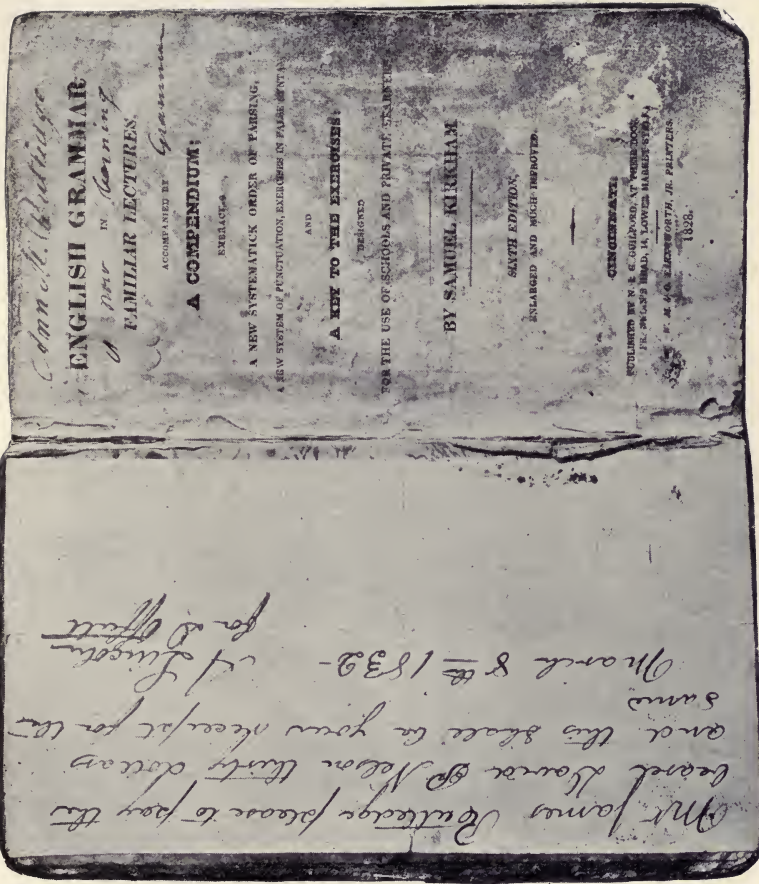 Ann M. Rutledge
ENGLISH GRAMMAR
is now IN learning
FAMILIAR LECTURES,
ACCOMPANIED BY Grammar
A COMPENDIUM;
EMBRACING
A NEW SYSTEMATICK ORDER OF PARSING,
A NEW SYSTEM OF PUNCTUATION, EXERCISES IN FALSE SYNTAX,
AND
A KEY TO THE EXERCISES:
DESIGNED
FOR THE USE OF SCHOOLS AND PRIVATE LEARNERS.
BY SAMUEL KIRKHAM
SIXTH EDITION,
ENLARGED AND MUCH IMPROVED.
CINCINNATI:
PUBLISHED BY N. & G. GUILFORD, AT THEIR BOOK
HEAD, 14, LOWER MARKET STREET.
W. M. & O. FARNSWORTH, JR. PRINTERS.
1828.
Mr James Rutledge please to pay the
bearer David P Nelson thirty dollars
and this shall be your receipt for the
same
March 8th 1832-
A Lincoln
for D Offutt